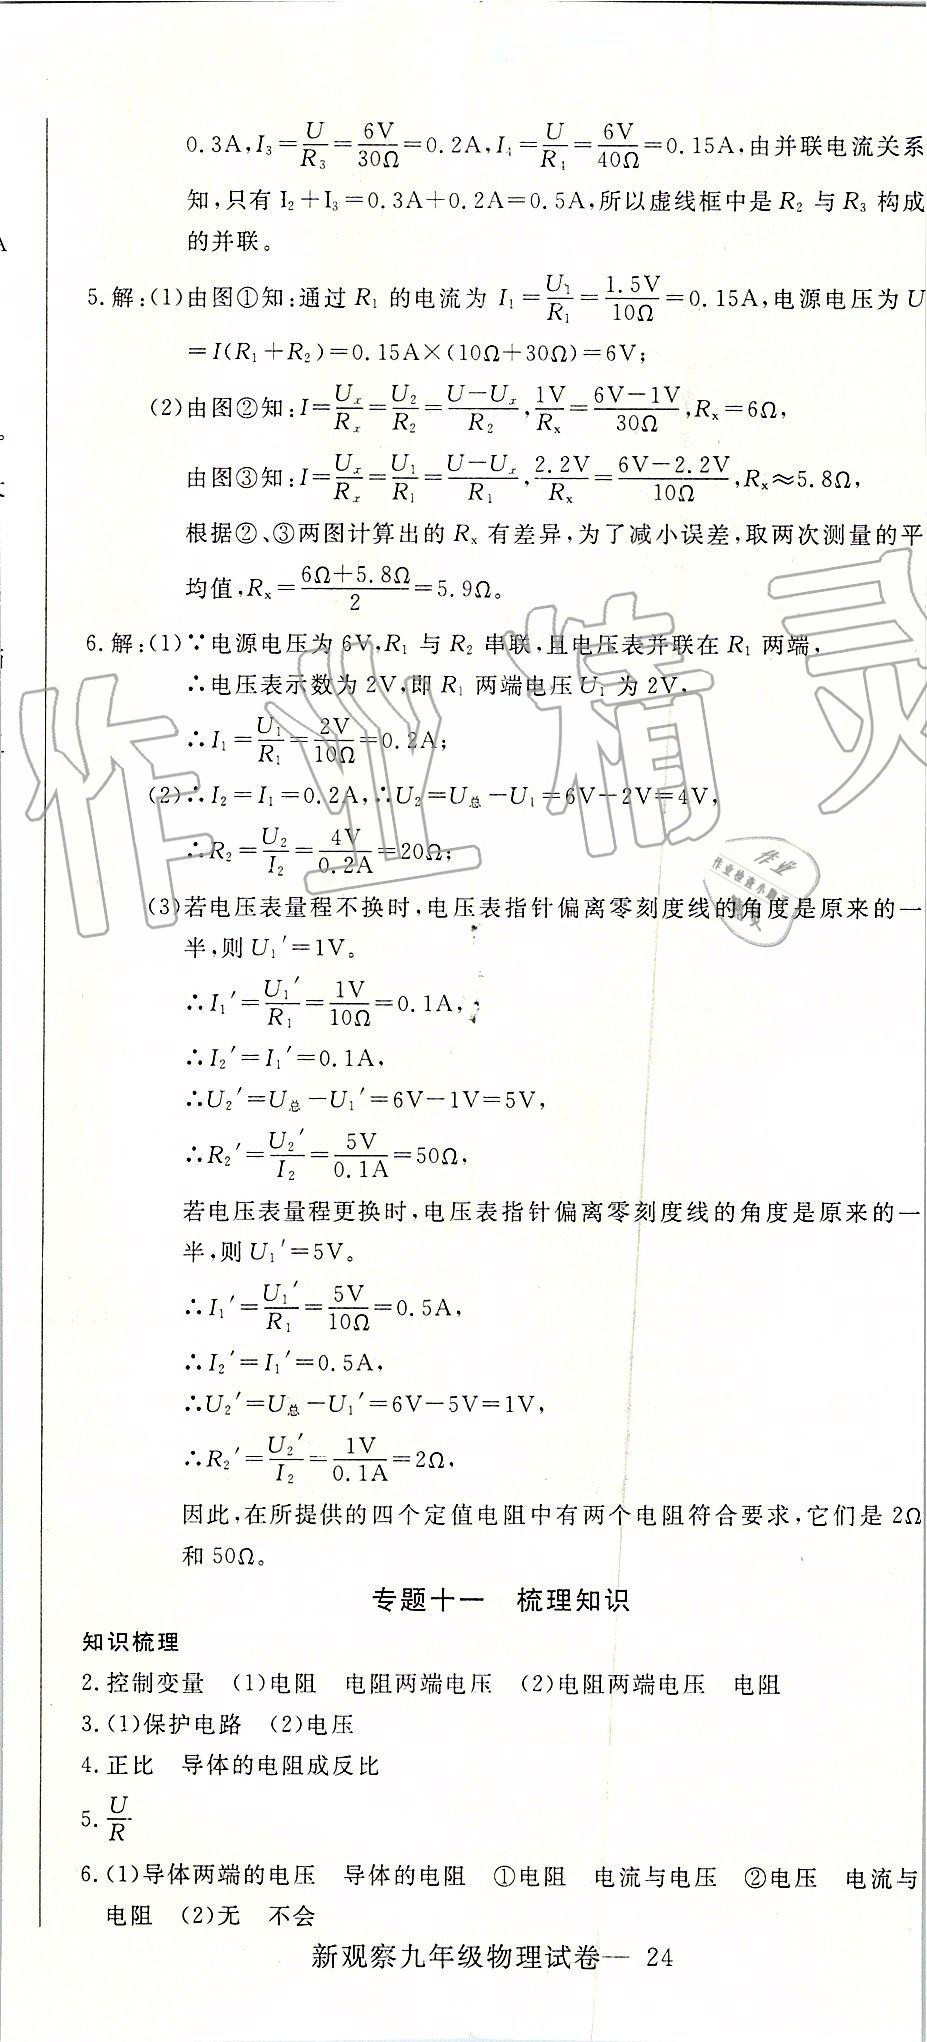 0.3A,I₃=U/R₃=6V/30Ω=0.2A,I₄=U/R₄=6V/40Ω=0.15A,由并联电流关系
知,只有 I₂+I₃=0.3A+0.2A=0.5A,所以虚线框中是 R₂ 与 R₃ 构成
的并联。
5.解:(1)由图①知:通过 R₁ 的电流为 I₁=U₁/R₁=1.5V/10Ω=0.15A,电源电压为 U
=I(R₁+R₂)=0.15A×(10Ω+30Ω)=6V;
(2)由图②知:I=Uₓ/Rₓ=U₂/R₂=(U-Uₓ)/R₂,1V/Rₓ=(6V-1V)/30Ω,Rₓ=6Ω,
由图③知:I=Uₓ/Rₓ=U₁/R₁=(U-Uₓ)/R₁,2.2V/Rₓ=(6V-2.2V)/10Ω,Rₓ≈5.8Ω,
根据②、③两图计算出的 Rₓ 有差异,为了减小误差,取两次测量的平
均值,Rₓ=(6Ω+5.8Ω)/2=5.9Ω。
6.解:(1)∵电源电压为 6V,R₁ 与 R₂ 串联,且电压表并联在 R₁ 两端,
∴电压表示数为 2V,即 R₁ 两端电压 U₁ 为 2V,
∴I₁=U₁/R₁=2V/10Ω=0.2A;
(2)∴I₂=I₁=0.2A,∴U₂=U总-U₁=6V-2V=4V,
∴R₂=U₂/I₂=4V/0.2A=20Ω;
(3)若电压表量程不换时,电压表指针偏离零刻度线的角度是原来的一
半,则 U₁′=1V。
∴I₁′=U₁′/R₁=1V/10Ω=0.1A,
∴I₂′=I₁′=0.1A,
∴U₂′=U总-U₁′=6V-1V=5V,
∴R₂′=U₂′/I₂=5V/0.1A=50Ω,
若电压表量程更换时,电压表指针偏离零刻度线的角度是原来的一
半,则 U₁′=5V。
∴I₁′=U₁′/R₁=5V/10Ω=0.5A,
∴I₂′=I₁′=0.5A,
∴U₂′=U总-U₁′=6V-5V=1V,
∴R₂′=U₂′/I₂=1V/0.1A=2Ω,
因此,在所提供的四个定值电阻中有两个电阻符合要求,它们是 2Ω
和 50Ω。
专题十一 梳理知识
知识梳理
2.控制变量 (1)电阻 电阻两端电压 (2)电阻两端电压 电阻
3.(1)保护电路 (2)电压
4.正比 导体的电阻成反比
5.U/R
6.(1)导体两端的电压 导体的电阻 ①电阻 电流与电压 ②电压 电流与
电阻 (2)无 不会
新观察九年级物理试卷— 24
作业精灵
作业
作业检查小